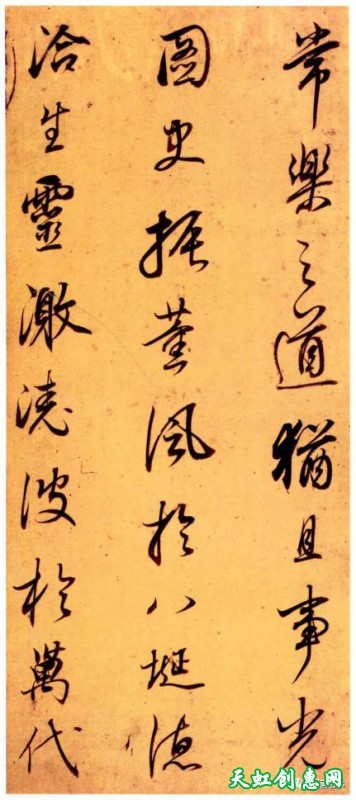 常樂之道猶且事光
圖史振薰風於八埏德
洽生靈激澆波於萬代
天虹创惠网